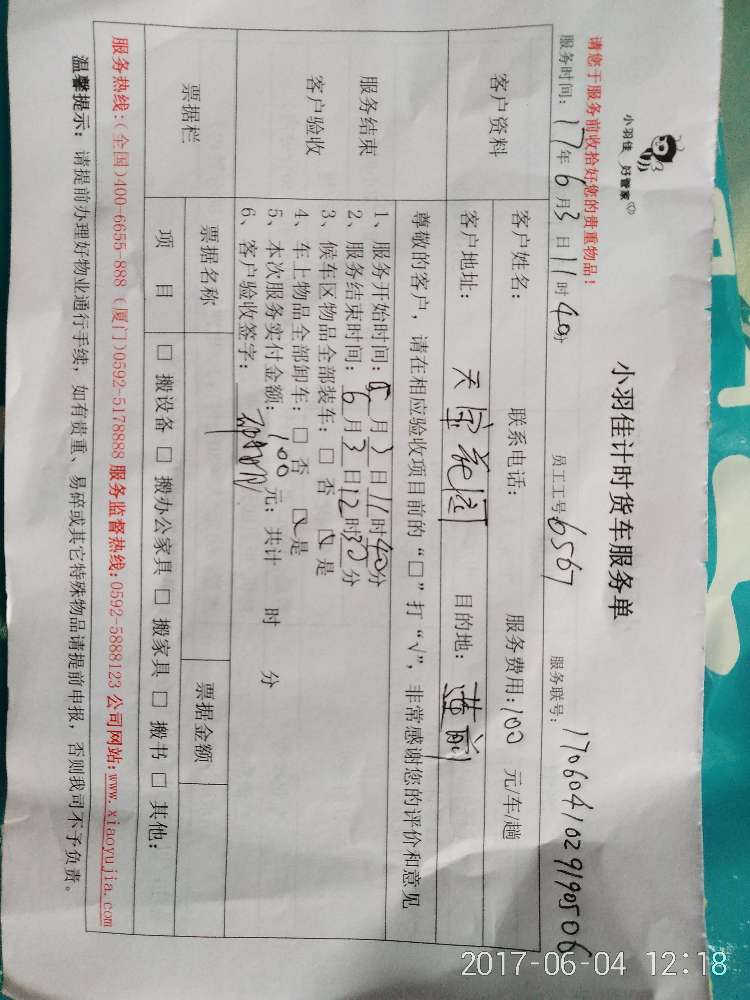 小羽佳 好管家
小羽佳计时货车服务单
请您于服务前收拾好您的贵重物品！
服务时间：17年6月3日11时40分 员工工号6567 服务联号：1706041029190506
客户资料
客户姓名： 联系电话： 服务费用：100 元/车/趟
客户地址：天宝花园 目的地：莲前
服务结束
客户验收
尊敬的客户，请在相应验收项目前的“□”打“√”，非常感谢您的评价和意见
1、服务开始时间：6月3日11时40分
2、服务结束时间：6月3日12时30分
3、候车区物品全部装车：□ 否 ☑ 是
4、车上物品全部卸车：□ 否 ☑ 是
5、本次服务实付金额：100元；共计 时 分
6、客户验收签字：
票据栏
票据名称 票据金额
项 目 □ 搬设备 □ 搬办公家具 □ 搬家具 □ 搬书 □ 其他：
服务热线:(全国)400-6655-888 (厦门)0592-5178888 服务监督热线:0592-5888123 公司网站:www.xiaoyujia.com
温馨提示：请提前办理好物业通行手续，如有贵重、易碎或其它特殊物品请提前申报，否则我司不予负责。
2017-06-04 12:18